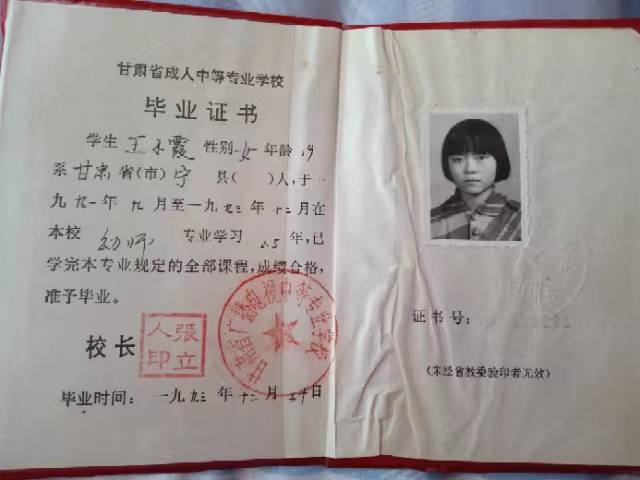 甘肃省成人中等专业学校
毕业证书
学生 王小霞 性别 女 年龄 19
系 甘肃 省(市) 宁 县( )人,于一
九九一年 九 月至一九九三年 十二 月在
本校 幼师 专业学习 2.5 年,已
学完本专业规定的全部课程,成绩合格,
准予毕业。
校长
張立人印
甘肃省广播电视中等专业学校
毕业时间: 一九九三 年 十二 月 日
证书号:
(未经省教委验印者无效)